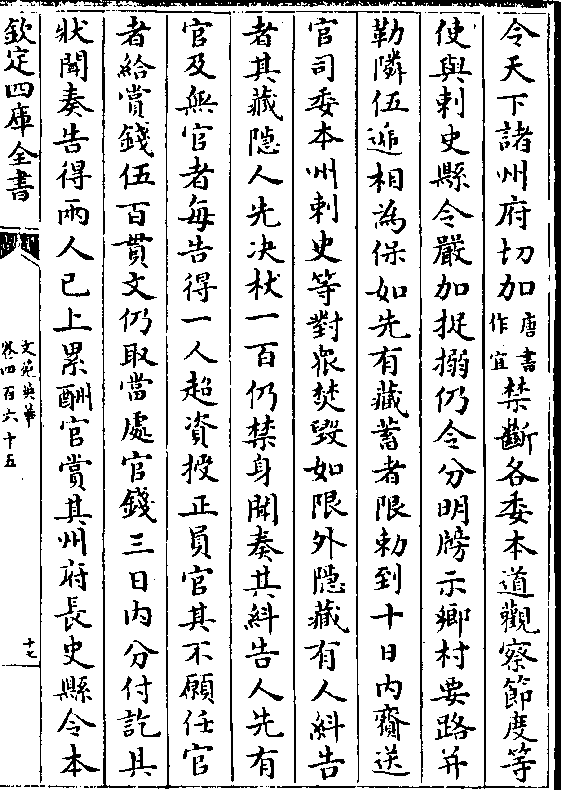 令天下諸州府切加唐書作宜禁斷各委本道觀察節度等
使與刺史縣令嚴加捉搦仍令分明牓示鄉村要路并
勒隣伍遞相為保如先有藏蓄者限勅到十日內齎送
官司委本州刺史等對眾焚毀如限外隱藏有人糾告
者其藏隱人先決杖一百仍禁身聞奏其糾告人先有
官及無官者每告得一人超資授正員官其不願任官
者給賞錢伍百貫文仍取當處官錢三日內分付訖具
狀聞奏告得兩人已上累酬官賞其州府長史縣令本
欽定四庫全書
文苑英華
卷四百六十五
十七